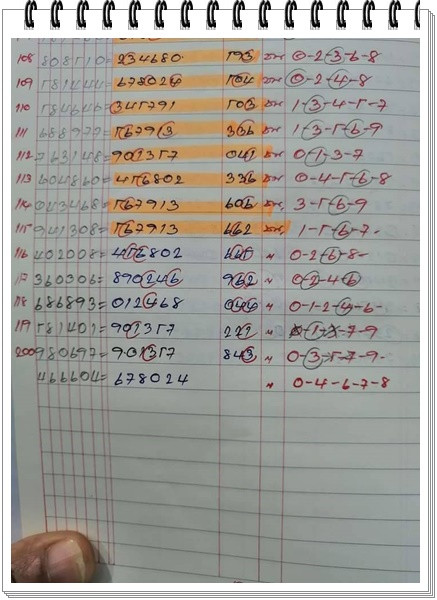 108 808510= 234680 593 0-2-3-6-8
109 581444= 678024 504 0-2-4-8
110 584646= 345791 503 1-3-4-5-7
111 688977= 567913 336 1-3-5-6-9
112 763148= 901357 041 0-1-3-7
113 604860= 456802 336 0-4-5-6-8
114 043468= 567913 606 3-5-6-9
115 941308= 567913 662 1-5-6-7-
116 402008= 456802 " 0-2-6-8-
117 360306= 890246 962 " 0-2-4-6
118 686893= 012468 044 " 0-1-2-4-6-
119 581401= 901357 271 " 1 7-9
200 980697= 901357 843 " 0-3-5-7-9-
466604= 678024 " 0-4-6-7-8